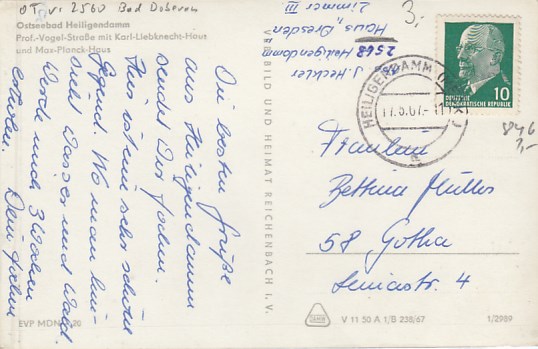 OT, vi 2560 Bad Doberan
Ostseebad Heiligendamm
Prof.-Vogel-Straße mit Karl-Liebknecht-Haus
und Max-Planck-Haus
Die besten Grüße
aus Heiligendamm
sendet Dir Johni.
Hier ist ein sehr schöne
Gegend. Wo man hin-
sieht Wasser und Wald.
Werde und 3 Wochen
Dein Johni
EVP MDN 0,20
VEB BILD UND HEIMAT REICHENBACH I. V.
J. Heckler
2568 Heiligendamm
Haus Dresden
Zimmer III
3,-
HEILIGENDAMM
10
DEUTSCHE
DEMOKRATISCHE REPUBLIK
846
3,-
Fräulein
Bettina Müller
58 Gotha
Leninstr. 4
V 11 50 A 1/B 238/67
1/2989